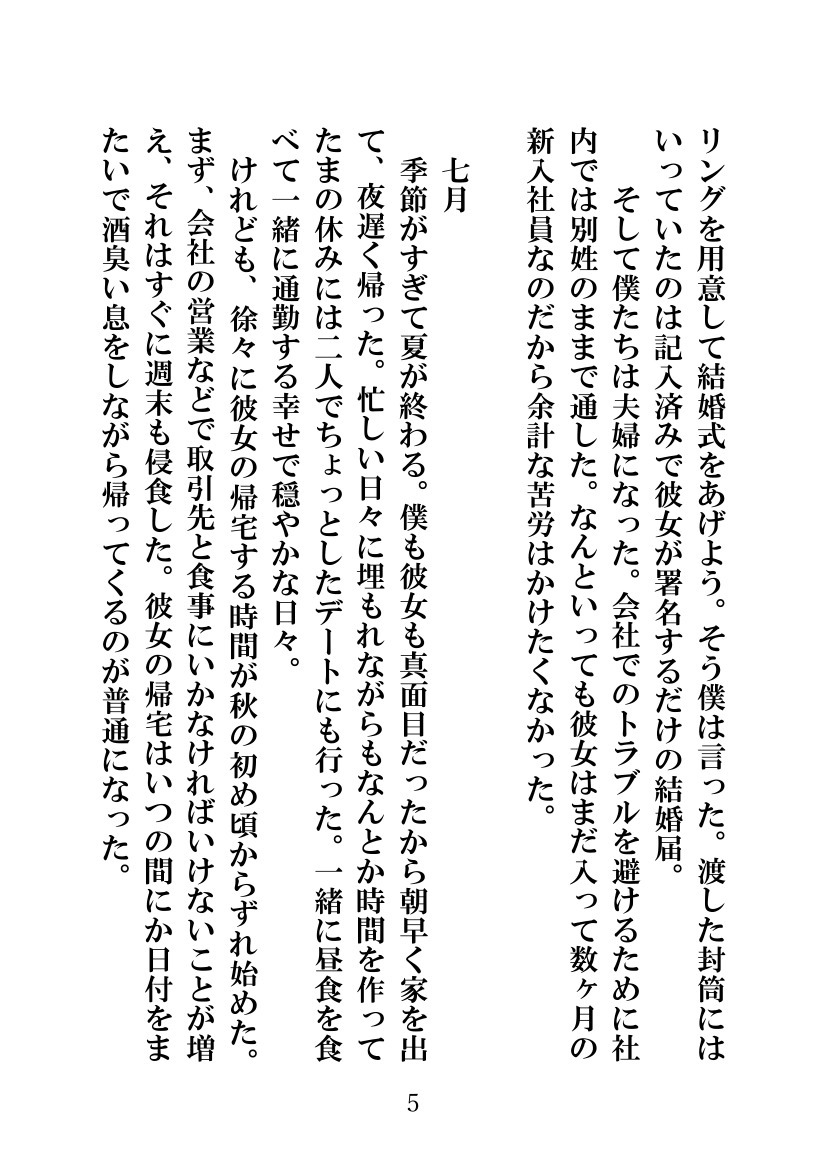 リングを用意して結婚式をあげよう。そう僕は言った。渡した封筒には
いっていたのは記入済みで彼女が署名するだけの結婚届。
そして僕たちは夫婦になった。会社でのトラブルを避けるために社
内では別姓のままで通した。なんといっても彼女はまだ入って数ヶ月の
新入社員なのだから余計な苦労はかけたくなかった。
七月
季節がすぎて夏が終わる。僕も彼女も真面目だったから朝早く家を出
て、夜遅く帰った。忙しい日々に埋もれながらもなんとか時間を作って
たまの休みには二人でちょっとしたデートにも行った。一緒に昼食を食
べて一緒に通勤する幸せで穏やかな日々。
けれども、徐々に彼女の帰宅する時間が秋の初め頃からずれ始めた。
まず、会社の営業などで取引先と食事にいかなければいけないことが増
え、それはすぐに週末も侵食した。彼女の帰宅はいつの間にか日付をま
たいで酒臭い息をしながら帰ってくるのが普通になった。
5